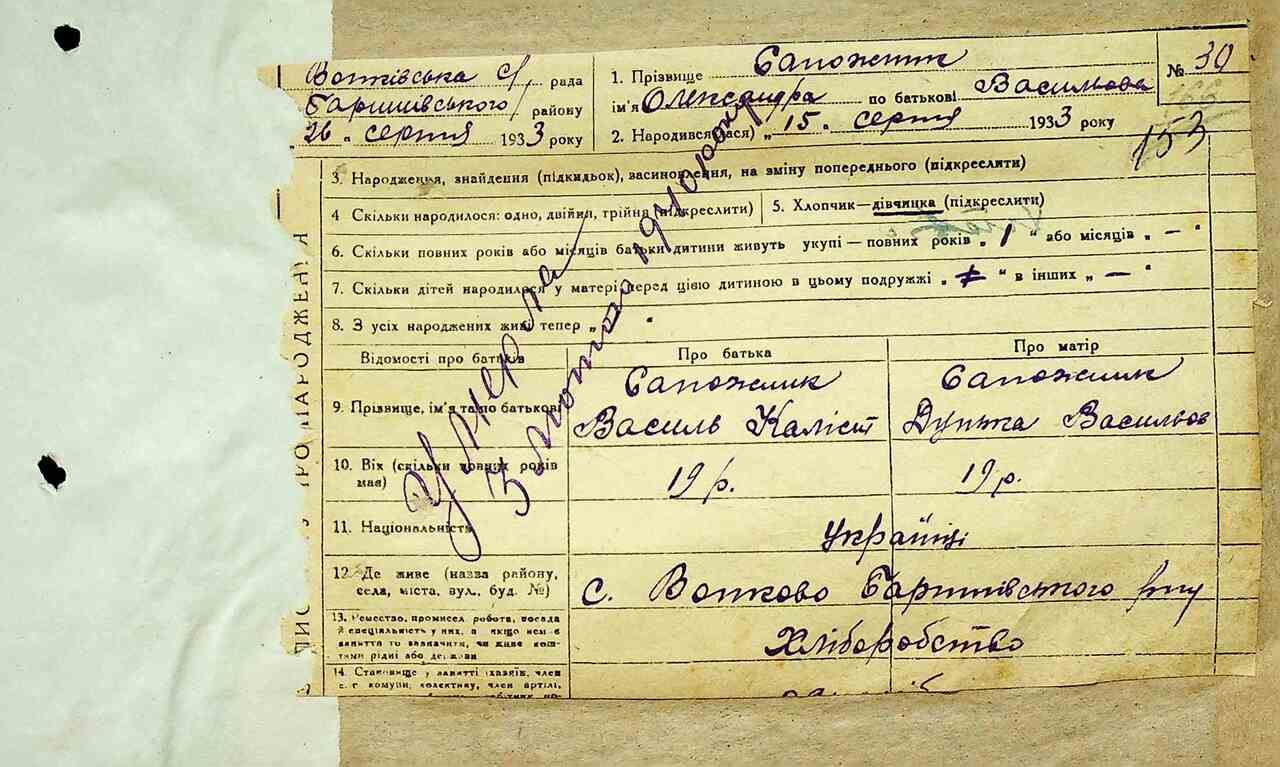 Вотківська с/ рада
Баришівського району
26 " серпня 1933 року
1. Прізвище Сапожник
ім'я Олександра по батькові Васильова
2. Народився(лася) „ 15 „ серпня 1933 року
№ 30
153
3. Народження, знайдення (підкидьок), засиновлення, на зміну попереднього (підкреслити)
4 Скільки народилося: одно, двійня, трійня (підкреслити)
5. Хлопчик—дівчинка (підкреслити)
6. Скільки повних років або місяців батьки дитини живуть укупі — повних років „ 1 " або місяців „ — "
7. Скільки дітей народилося у матері перед цією дитиною в цьому подружжі „ " в інших „ — "
8. З усіх народжених живі тепер „ "
Відомості про батьків
Про батька
Про матір
9. Прізвище, ім'я та по батькові
Сапожник
Василь Каліст
Сапожник
Дунька Васильов
10. Віх (скільки повних років має)
19 р.
19 р.
11. Національність
Українці
12. Де живе (назва району, села, міста, вул., буд. №)
с. Вотково Баришівського р-ну
13. Ремество, промисел, робота, посада й спеціальність у них, а якщо нема заняття то зазначити, чи живе коштами рідні або держави
Хліборобство
14. Становище у занятті (хазяїн, член с.-г. комуни, колективу, член артілі,
Умерла
3 лютого 1940 року
ЛИС ПРО НАРОДЖЕННЯ